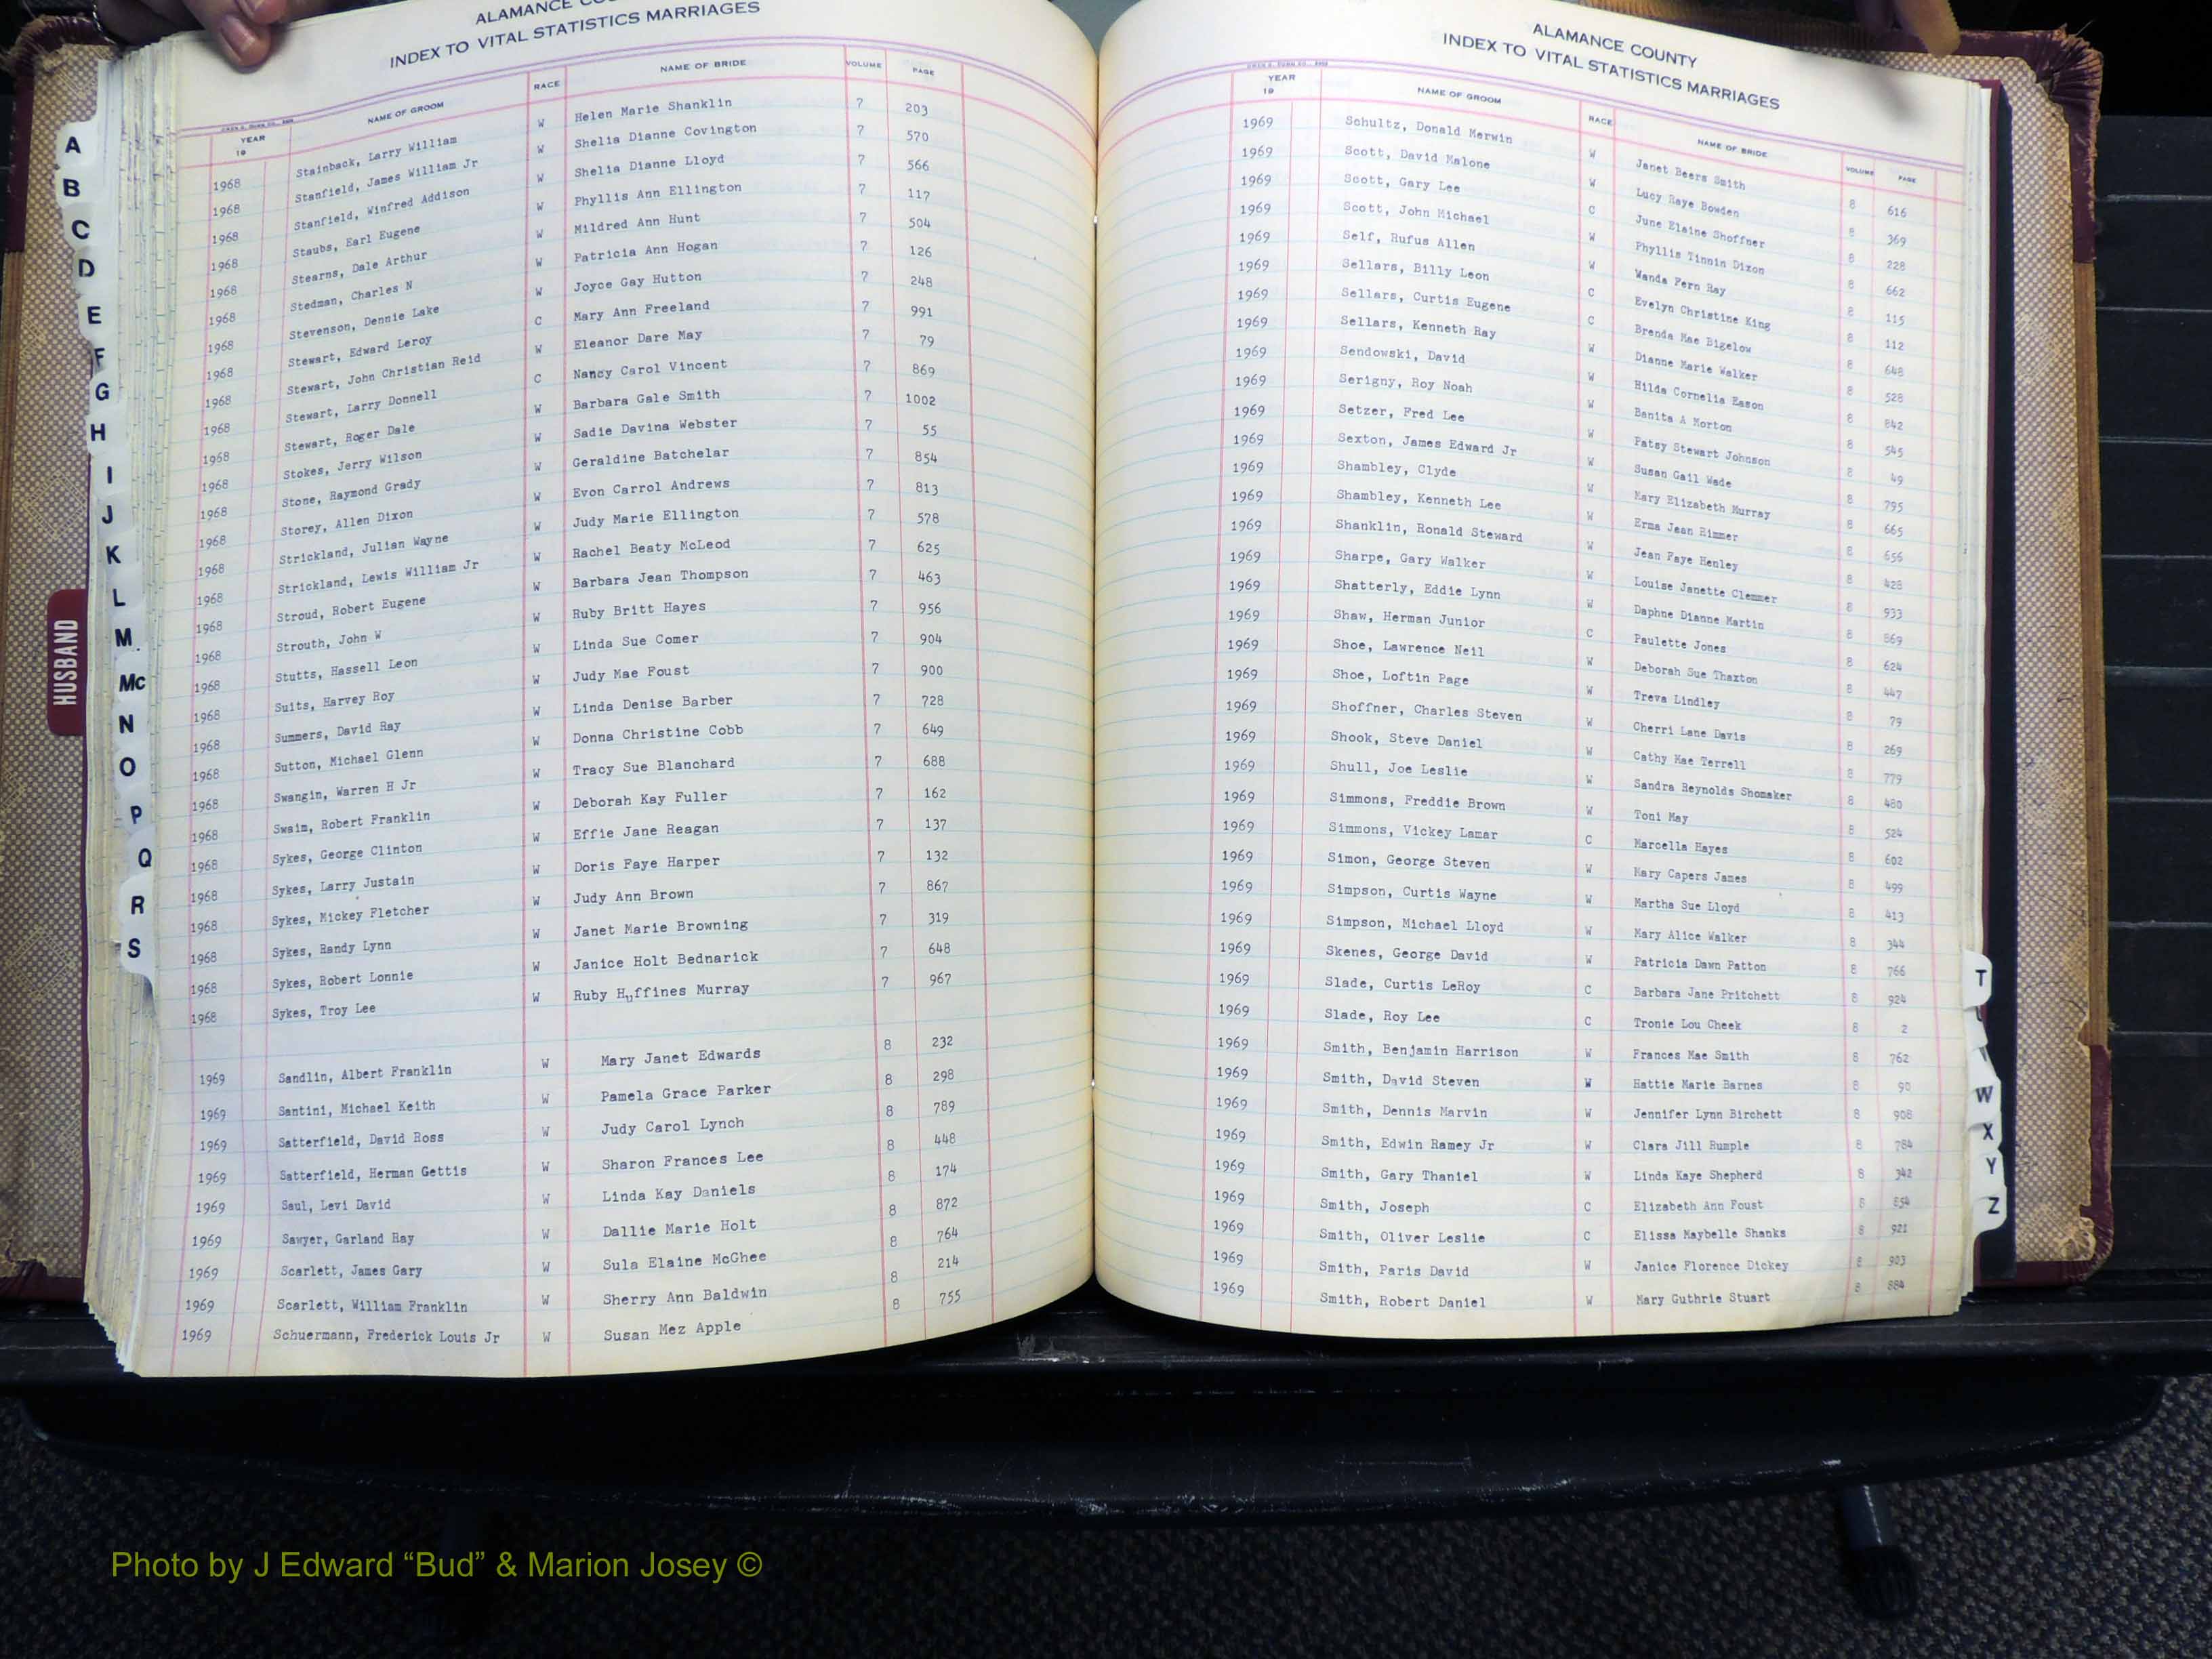 ALAMANCE COU
INDEX TO VITAL STATISTICS MARRIAGES
YEAR 19 NAME OF GROOM RACE NAME OF BRIDE VOLUME PAGE
1968 Stainback, Larry William W Helen Marie Shanklin 7 203
1968 Stanfield, James William Jr W Shelia Dianne Covington 7 570
1968 Stanfield, Winfred Addison W Shelia Dianne Lloyd 7 566
1968 Staubs, Earl Eugene W Phyllis Ann Ellington 7 117
1968 Stearns, Dale Arthur W Mildred Ann Hunt 7 504
1968 Stedman, Charles N W Patricia Ann Hogan 7 126
1968 Stevenson, Dennie Lake W Joyce Gay Hutton 7 248
1968 Stewart, Edward Leroy C Mary Ann Freeland 7 991
1968 Stewart, John Christian Reid W Eleanor Dare May 7 79
1968 Stewart, Larry Donnell C Nancy Carol Vincent 7 869
1968 Stewart, Roger Dale W Barbara Gale Smith 7 1002
1968 Stokes, Jerry Wilson W Sadie Davina Webster 7 55
1968 Stone, Raymond Grady W Geraldine Batchelar 7 854
1968 Storey, Allen Dixon W Evon Carrol Andrews 7 813
1968 Strickland, Julian Wayne W Judy Marie Ellington 7 578
1968 Strickland, Lewis William Jr W Rachel Beaty McLeod 7 625
1968 Stroud, Robert Eugene W Barbara Jean Thompson 7 463
1968 Strouth, John W W Ruby Britt Hayes 7 956
1968 Stutts, Hassell Leon W Linda Sue Comer 7 904
1968 Suits, Harvey Roy W Judy Mae Foust 7 900
1968 Summers, David Ray W Linda Denise Barber 7 728
1968 Sutton, Michael Glenn W Donna Christine Cobb 7 649
1968 Swangin, Warren H Jr W Tracy Sue Blanchard 7 688
1968 Swaim, Robert Franklin W Deborah Kay Fuller 7 162
1968 Sykes, George Clinton W Effie Jane Reagan 7 137
1968 Sykes, Larry Justain W Doris Faye Harper 7 132
1968 Sykes, Mickey Fletcher W Judy Ann Brown 7 867
1968 Sykes, Randy Lynn W Janet Marie Browning 7 319
1968 Sykes, Robert Lonnie W Janice Holt Bednarick 7 648
1968 Sykes, Troy Lee W Ruby Huffines Murray 7 967
1969 Sandlin, Albert Franklin W Mary Janet Edwards 8 232
1969 Santini, Michael Keith W Pamela Grace Parker 8 298
1969 Satterfield, David Ross W Judy Carol Lynch 8 789
1969 Satterfield, Herman Gettis W Sharon Frances Lee 8 448
1969 Saul, Levi David W Linda Kay Daniels 8 174
1969 Sawyer, Garland Ray W Dallie Marie Holt 8 872
1969 Scarlett, James Gary W Sula Elaine McGhee 8 764
1969 Scarlett, William Franklin W Sherry Ann Baldwin 8 214
1969 Schuermann, Frederick Louis Jr W Susan Mez Apple 8 755
A
B
C
D
E
F
G
H
I
J
K
L
M
Mc
N
O
P
Q
R
S
HUSBAND
ALAMANCE COUNTY
INDEX TO VITAL STATISTICS MARRIAGES
YEAR 19 NAME OF GROOM RACE NAME OF BRIDE VOLUME PAGE
1969 Schultz, Donald Merwin W Janet Beers Smith 8 616
1969 Scott, David Malone W Lucy Raye Bowden 8 369
1969 Scott, Gary Lee C June Elaine Shoffner 8 228
1969 Scott, John Michael W Phyllis Tinnin Dixon 8 662
1969 Self, Rufus Allen W Wanda Fern Ray 8 115
1969 Sellars, Billy Leon C Evelyn Christine King 8 112
1969 Sellars, Curtis Eugene C Brenda Mae Bigelow 8 648
1969 Sellars, Kenneth Ray W Dianne Marie Walker 8 528
1969 Sendowski, David W Hilda Cornelia Eason 8 842
1969 Serigny, Roy Noah W Banita A Morton 8 545
1969 Setzer, Fred Lee W Patsy Stewart Johnson 8 49
1969 Sexton, James Edward Jr W Susan Gail Wade 8 795
1969 Shambley, Clyde W Mary Elizabeth Murray 8 665
1969 Shambley, Kenneth Lee W Erma Jean Rimmer 8 656
1969 Shanklin, Ronald Steward W Jean Faye Henley 8 428
1969 Sharpe, Gary Walker W Louise Janette Clemmer 8 933
1969 Shatterly, Eddie Lynn W Daphne Dianne Martin 8 869
1969 Shaw, Herman Junior C Paulette Jones 8 624
1969 Shoe, Lawrence Neil W Deborah Sue Thaxton 8 447
1969 Shoe, Loftin Page W Treva Lindley 8 79
1969 Shoffner, Charles Steven W Cherri Lane Davis 8 269
1969 Shook, Steve Daniel W Cathy Mae Terrell 8 779
1969 Shull, Joe Leslie W Sandra Reynolds Shomaker 8 480
1969 Simmons, Freddie Brown W Toni May 8 524
1969 Simmons, Vickey Lamar C Marcella Hayes 8 602
1969 Simon, George Steven W Mary Capers James 8 499
1969 Simpson, Curtis Wayne W Martha Sue Lloyd 8 413
1969 Simpson, Michael Lloyd W Mary Alice Walker 8 344
1969 Skenes, George David W Patricia Dawn Patton 8 766
1969 Slade, Curtis LeRoy C Barbara Jane Pritchett 8 924
1969 Slade, Roy Lee C Tronie Lou Cheek 8 2
1969 Smith, Benjamin Harrison W Frances Mae Smith 8 762
1969 Smith, David Steven W Hattie Marie Barnes 8 90
1969 Smith, Dennis Marvin W Jennifer Lynn Birchett 8 908
1969 Smith, Edwin Ramey Jr W Clara Jill Rumple 8 784
1969 Smith, Gary Thaniel W Linda Kaye Shepherd 8 342
1969 Smith, Joseph C Elizabeth Ann Foust 8 854
1969 Smith, Oliver Leslie C Elissa Maybelle Shanks 8 921
1969 Smith, Paris David W Janice Florence Dickey 8 903
1969 Smith, Robert Daniel W Mary Guthrie Stuart 8 884
T
W
X
Y
Z
Photo by J Edward “Bud” & Marion Josey ©